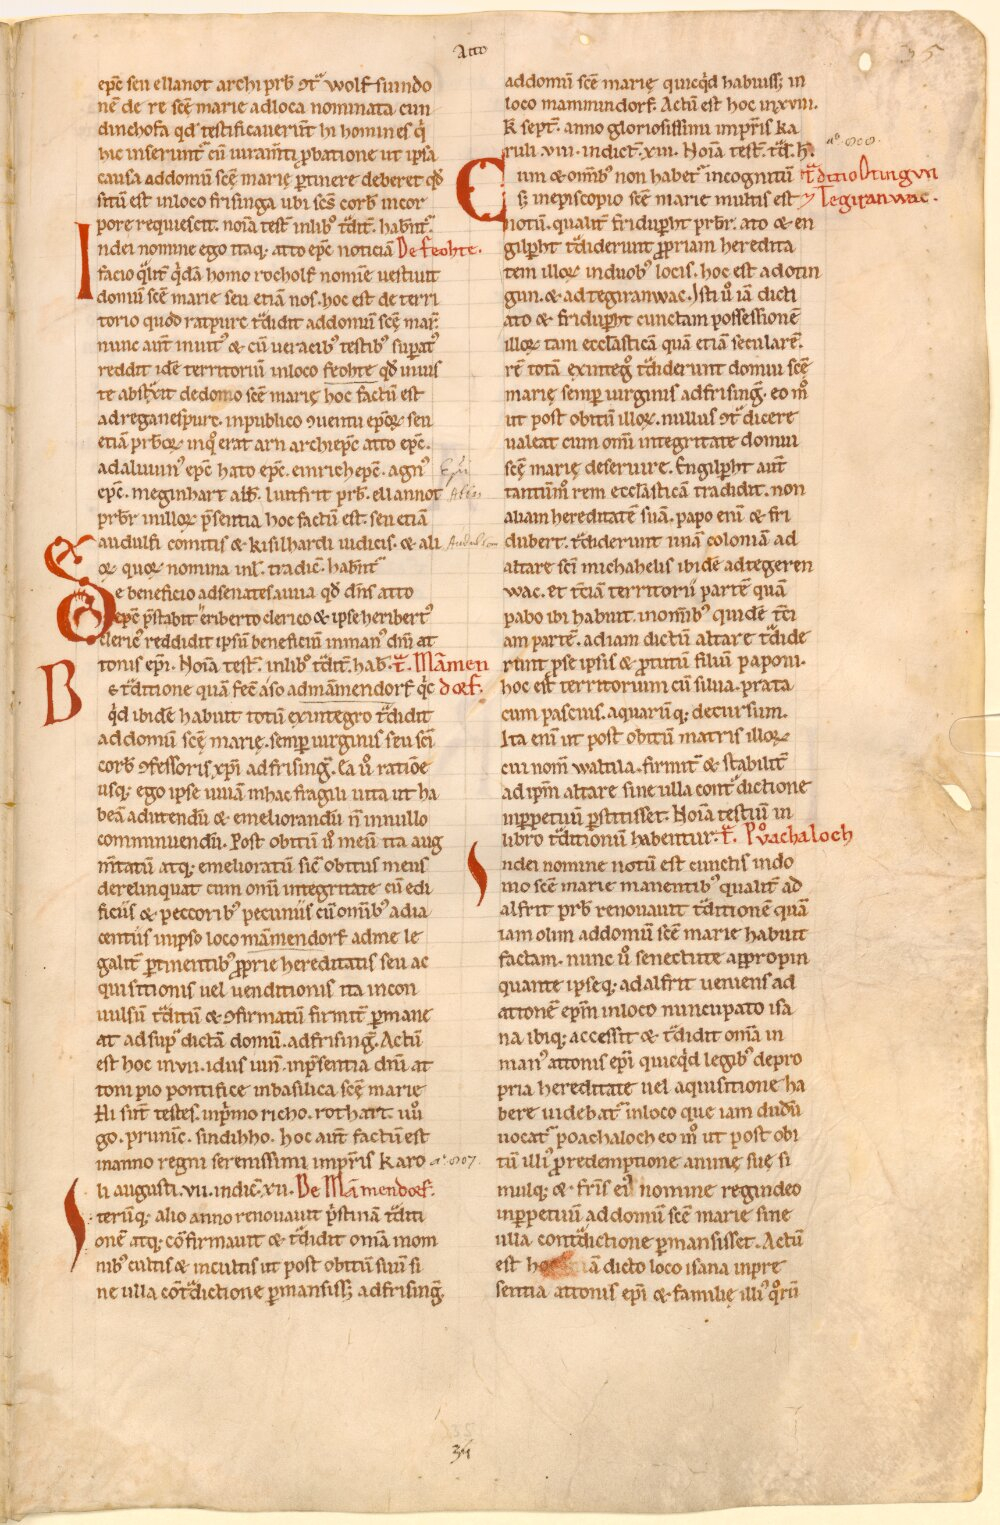 Atto
35
epc̄ seu ellanot archi prb̄ ꝯtᵃ wolf suindo
nē de re scē marie ad loca nominata cun
dinchofa qđ testificauer̄t hi homines q̄
hic inserunt᷑ cū iuram̄ti ꝓbatione ut ipsa
causa ad domū scē marię ꝑtinere deberet qđ
sitū est in loco frisinga ubi scs̄ corb̄ in cor
pore requiescit. noīa test̄ in libᵒ tᵃdit̄. habn̄t᷑
Indei nomine ego itaq; atto epc̄ noticiā De feohte.
facio qͥlit̄ qͥdā homo rocholf nomīe uestiuit
domū scē marie seu etiā nos. hoc est de terri
torio quod ratpurc tᵃdidit ad domū scē mar̄.
nunc aut̄ inuitꝰ & cū ueracibꝰ testibꝰ supatꝰ
reddit idē territoriū in loco feohte qđ iniuis
te abstᵃxit de domo scē marię hoc factū est
ad reganespurc. in publico ꝯuentu epōꝝ seu
etiā prb̄oꝝ inqͦ erat arn archiepc̄ atto epc̄.
adaluuinꝰ epc̄ hato epc̄. einrich epc̄. agnꝰ
epc̄. meginhart alb̄. luitfrit prb̄. ellannot
prb̄r in illoꝝ p̄sentia hoc factū est. seu etiā
audulfi comitis & kisilhardi iudicis. & ali
oꝝ quoꝝ nomina in l. tradic̄. habn̄t᷑
De beneficio ad senatesauua qđ dn̄s atto
epc̄ p̄stabit eriberto clerico & ipse heribertꝰ
clericꝰ reddidit ipsū beneficiū in manꝰ dn̄i at
tonis epi. Noīa test̄. in libᵒ tᵃdit̄. hab̄. T̄. Māmen
De tᵃditione quā fec̄ aso ad māmendorf qͥc dorf.
qͥd ibidē habuit totū ex integro tᵃdidit
ad domū scē marię. semꝑ uirginis seu sci
corb̄ ꝯfessoris xp̄i ad frisinḡ. Ea u̾ ratiōe
usq; ego ipse uiuā in hac fragili uita ut ha
beā ad utendū & emeliorandū n̄ in nullo
comminuendū. Post obitū u̾ meū ita aug
m̄tatū atq; emelioratū sic̄ obitus meus
derelinquat cum om̄i integritate cū edi
ficiis & peccoribꝰ pecuniis cū om̄ibꝰ adia
centiis in ipso loco māmendorf ad me le
galit̄ ꝑtinentibꝰ ꝓprie hereditatis seu ac
quisitionis uel uenditionis ita incon
uulsū tᵃditū & ꝯfirmatū firmit̄ ꝑmane
at ad supᵃ dictā domū. ad frisinḡ. Actū
est hoc in vii. idus iun̄. in p̄sentia dn̄i at
toni pio pontifice in basilica scē marie
Hi sunt testes. in p̄mo richo. rothart. uu̾
go. prunic̄. sindihho. hoc aut̄ factū est
in anno regni serenissimi imp̄ris karo
li augusti. vii. indic̄. xii. De Māmendorf.
Iterūq; alio anno renouauit p̄stinā tᵃditi
onē atq; cōfirmauit & tᵃdidit om̄ia in om
nibꝰ cultis & incultis ut post obitū suū si
ne ulla cōtᵃdictione ꝑmansiss; ad frisinḡ.
ad domū scē marię quicqͥd habuiss; in
loco mammindorf. Actū est hoc in xviii.
k̄ sept̄. anno gloriosissimi imp̄ris ka
ruli. viii. indict̄. xiii. Noīa test̄. tᵃd. h̄.
Cum & om̄ibꝰ non habet᷑ incognitū Tᵃditio Otingun
s; in episcopio scē marie multis est & Tegiranwac.
notū. qualit̄ friduꝑht prb̄r. ato & en
gilꝑht tᵃdiderunt ꝓpriam heredita
tem illoꝝ in duobꝰ locis. hoc est ad otin
gun. & ad tegiranwac. Isti u̾ iā dicti
ato & friduꝑht cunctam possessionē
illoꝝ tam ecclasticā quā etiā secularē.
rē totā ex integͦ tᵃdiderunt domui scē
marię semꝑ uirginis ad frisinḡ. eo mͦ
ut post obitū illoꝝ. nullus ꝯtᵃ dicere
ualeat cum om̄i integritate domui
scē marię deseruire. Engilꝑht aut̄
tantūmͦ rem ecclasticā tradidit. non
aliam hereditatē suā. papo eni & fri
dubert. tᵃdiderunt unā coloniā ad
altare sci michahelis ibidē ad tegeren
wac. et tciā territorii partē quā
pabo ibi habuit. in om̄ibꝰ quidē tci
am partē. ad iam dictū altare tᵃdide
runt ꝑ se ipsis & ꝓ tutū filiū paponi.
hoc est territorium cū silua. prata
cum pascuis. aquarūq; decursum.
Ita eni ut post obitū matris illoꝝ
cui nom̄ waltila. firmit̄ & stabilit̄
ad ip̄m altare sine ulla contᵃdictione
in ꝑpetuū ꝑstitisset. Noīa testiū in
libro tᵃditionū habentur. T̄. Puͦachaloch
Indei nomine notū est cunctis in do
mo scē marie manentibꝰ qualit̄ ad
alfrit prb̄ renouauit tᵃditionē quā
iam olim ad domū scē marie habuit
factam. nunc u̾ senectute appropin
quante ipseq; adalfrit ueniens ad
attonē ep̄m in loco nuncupato isa
na ibiq; accessit & tᵃdidit om̄ia in
manꝰ attonis epi quicqͥd legibꝰ de pro
pria hereditate uel aquisitione ha
bere uidebat᷑ in loco que iam dudū
uocat᷑ poachaloch eo mͦ ut post obi
tū illiꝰ ꝓ redemptione animę suę si
mulq; & fr̄is eiꝰ nomine regindeo
in ꝑpetuū ad domū scē marie sine
ulla contᵃdictione ꝑmansisset. Actū
est hoc iā dicto loco isana in pre
sentia attonis epi & familię illiꝰ qͦrū
34